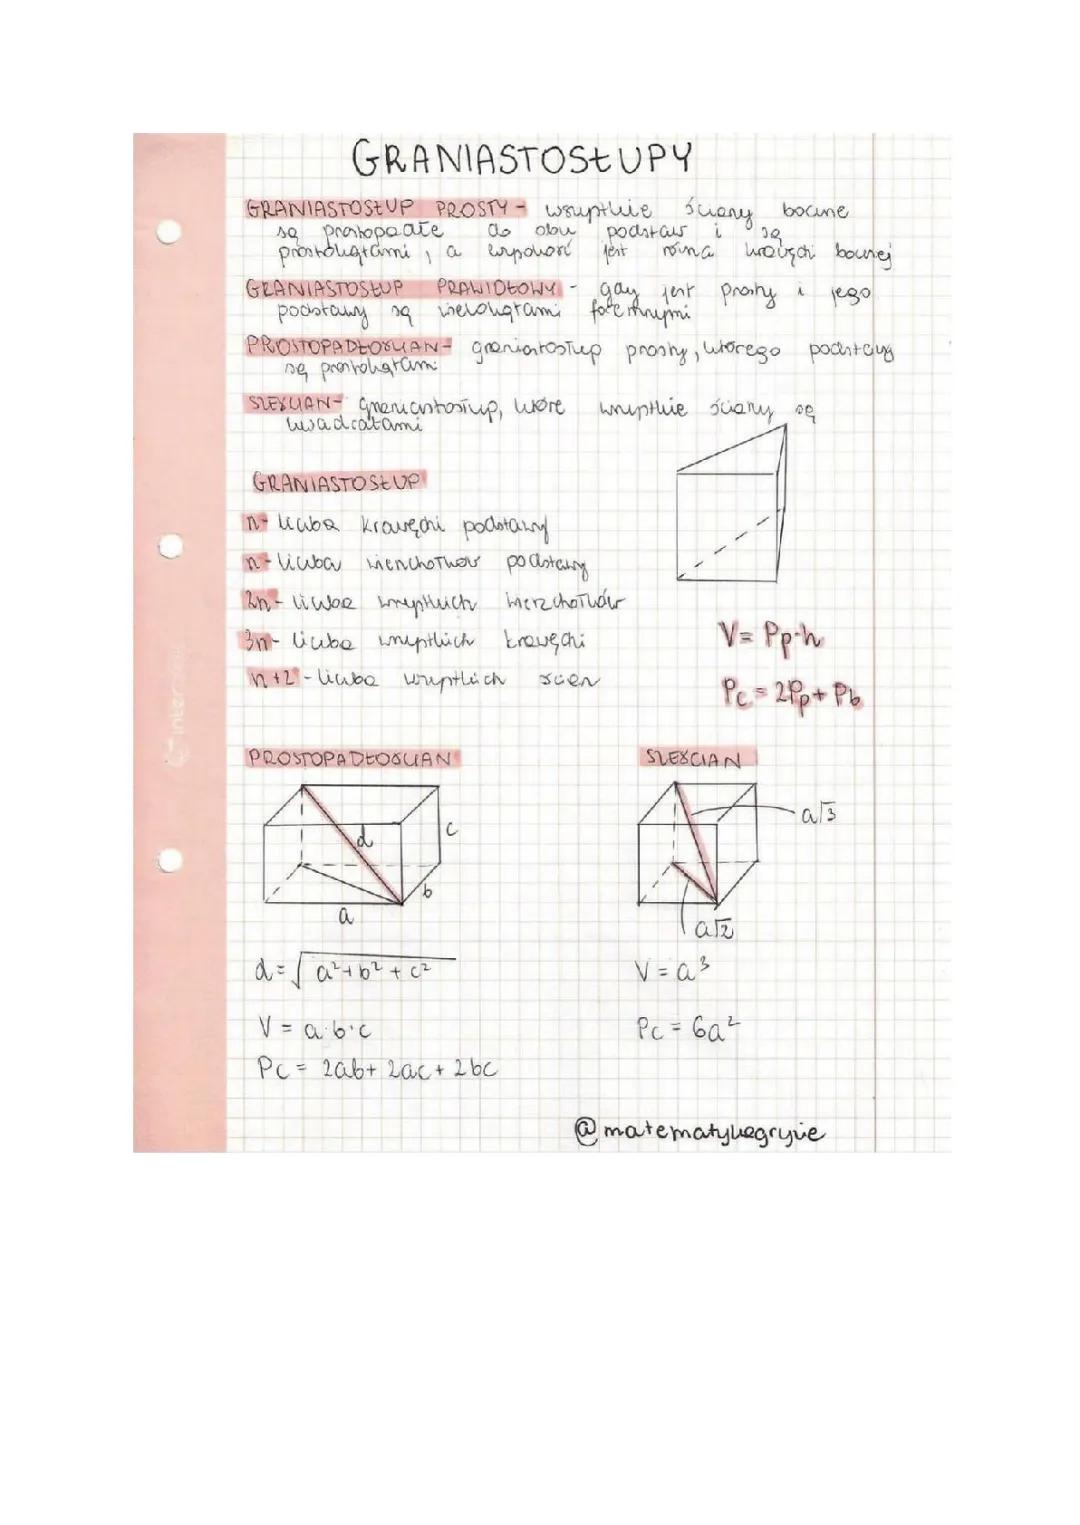 GRANIASTOSŁUPY
GRANIASTOSŁUP PROSTY - wszystkie ściany boczne
są prostopadłe do obu podstaw i są
prostokątami, a wysokość jest równa krawędzi bocznej
GRANIASTOSŁUP PRAWIDŁOWY - gdy jest prosty i jego
podstawy są wielokątami foremnymi
PROSTOPADŁOŚCIAN - graniastosłup prosty, którego podstawy
są prostokątami
SZEŚCIAN - graniastosłup, które wszystkie ściany są
kwadratami
GRANIASTOSŁUP
n - liczba krawędzi podstawy
n - liczba wierzchołków podstawy
2n - liczba wszystkich wierzchołków
3n - liczba wszystkich krawędzi
n+2 - liczba wszystkich ścian
V = Pp·h
Pc = 2Pp + Pb
interdruk
PROSTOPADŁOŚCIAN
d
c
b
a
d = √a²+b²+c²
V = a·b·c
Pc = 2ab + 2ac + 2bc
SZEŚCIAN
a√3
a√2
V = a³
Pc = 6a²
@matematykagryzie